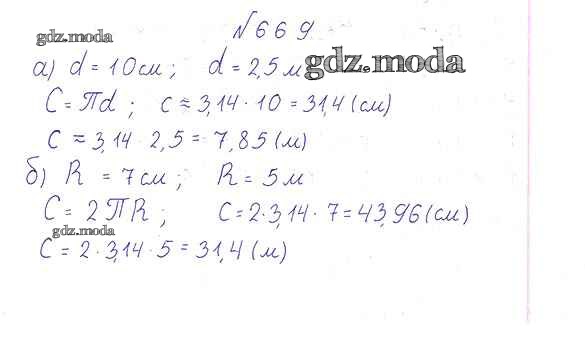 №669
gdz.moda
а) d = 10 см; d = 2,5 м gdz.moda
C = πd; c ≈ 3,14 · 10 = 31,4 (см)
C ≈ 3,14 · 2,5 = 7,85 (м)
б) R = 7 см; R = 5 м
C = 2πR; C = 2·3,14 · 7 = 43,96 (см)
gdz.moda
C = 2 · 3,14 · 5 = 31,4 (м)